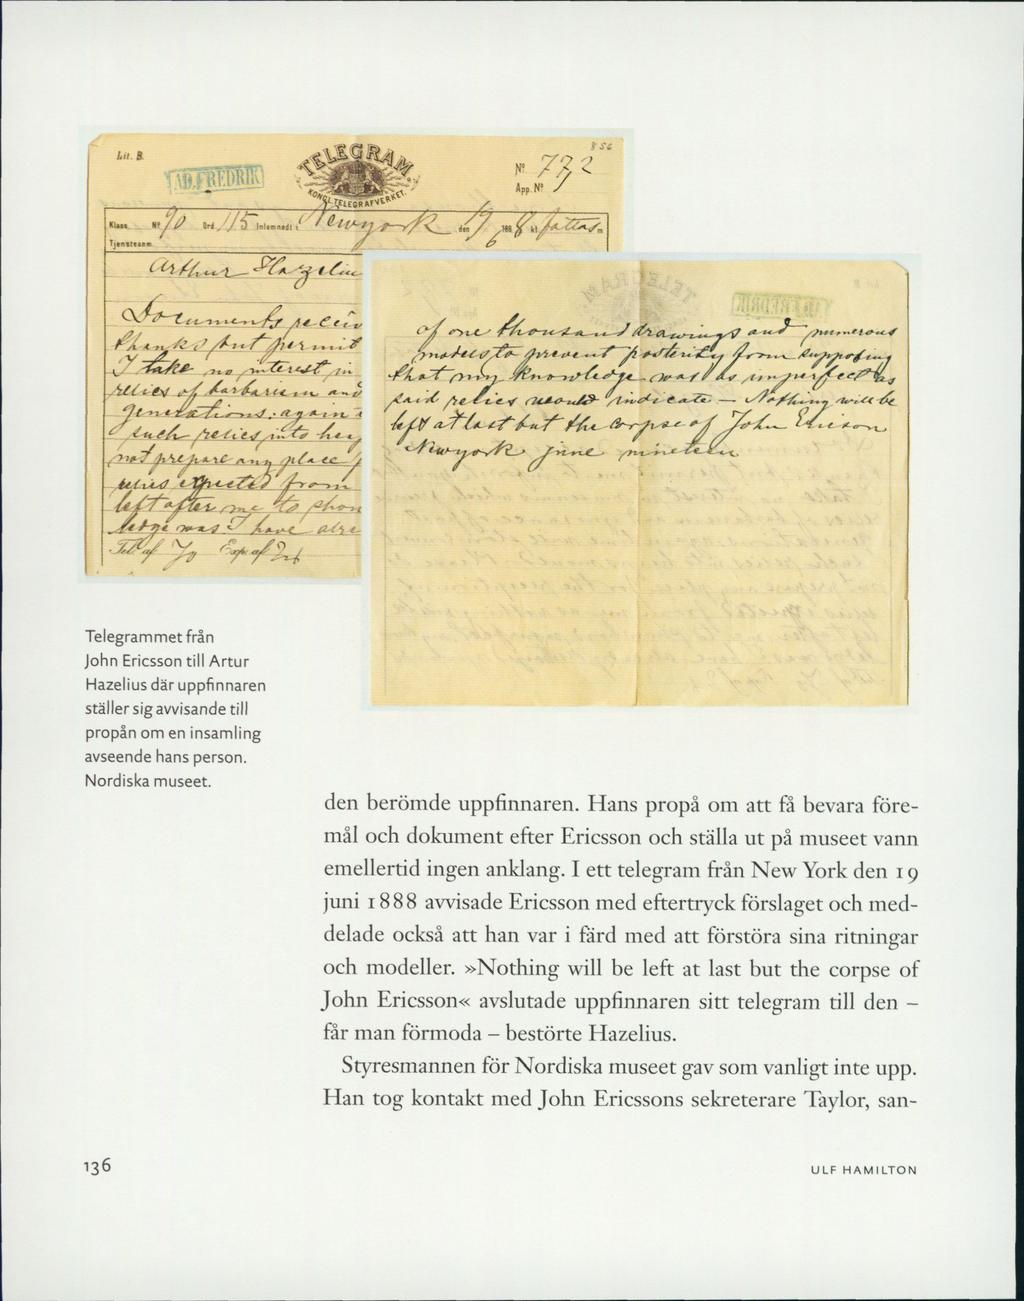 Lit. B.
856
AD.FREDRIK
TELEGRAM
KONGL. TELEGRAFVERKET.
Nº 772
App. Nº
Klass Nº 90 Ord 115 Inlemnadt i Newyork den 19/6 1888 kl. m
Tjensteanm.
Arthur Hazeliu
Documents receiv
thanks but permit
I take no interest in
relics of barbarism and
generations: again
such relics into hea
not prepare any place
relics expected from
left after me to show
ledge was I have alre
Tel. af Exp. af
of one thousand drawings and numerous
models to prevent posterity from supposing
that my knowledge was as imperfect as
said relics would indicate — Nothing will be
left at last but the corpse of John Ericson
Newyork june nineteen
Telegrammet från
John Ericsson till Artur
Hazelius där uppfinnaren
ställer sig avvisande till
propån om en insamling
avseende hans person.
Nordiska museet.
den berömde uppfinnaren. Hans propå om att få bevara före-
mål och dokument efter Ericsson och ställa ut på museet vann
emellertid ingen anklang. I ett telegram från New York den 19
juni 1888 avvisade Ericsson med eftertryck förslaget och med-
delade också att han var i färd med att förstöra sina ritningar
och modeller. »Nothing will be left at last but the corpse of
John Ericsson« avslutade uppfinnaren sitt telegram till den –
får man förmoda – bestörte Hazelius.
Styresmannen för Nordiska museet gav som vanligt inte upp.
Han tog kontakt med John Ericssons sekreterare Taylor, san-
136
ULF HAMILTON